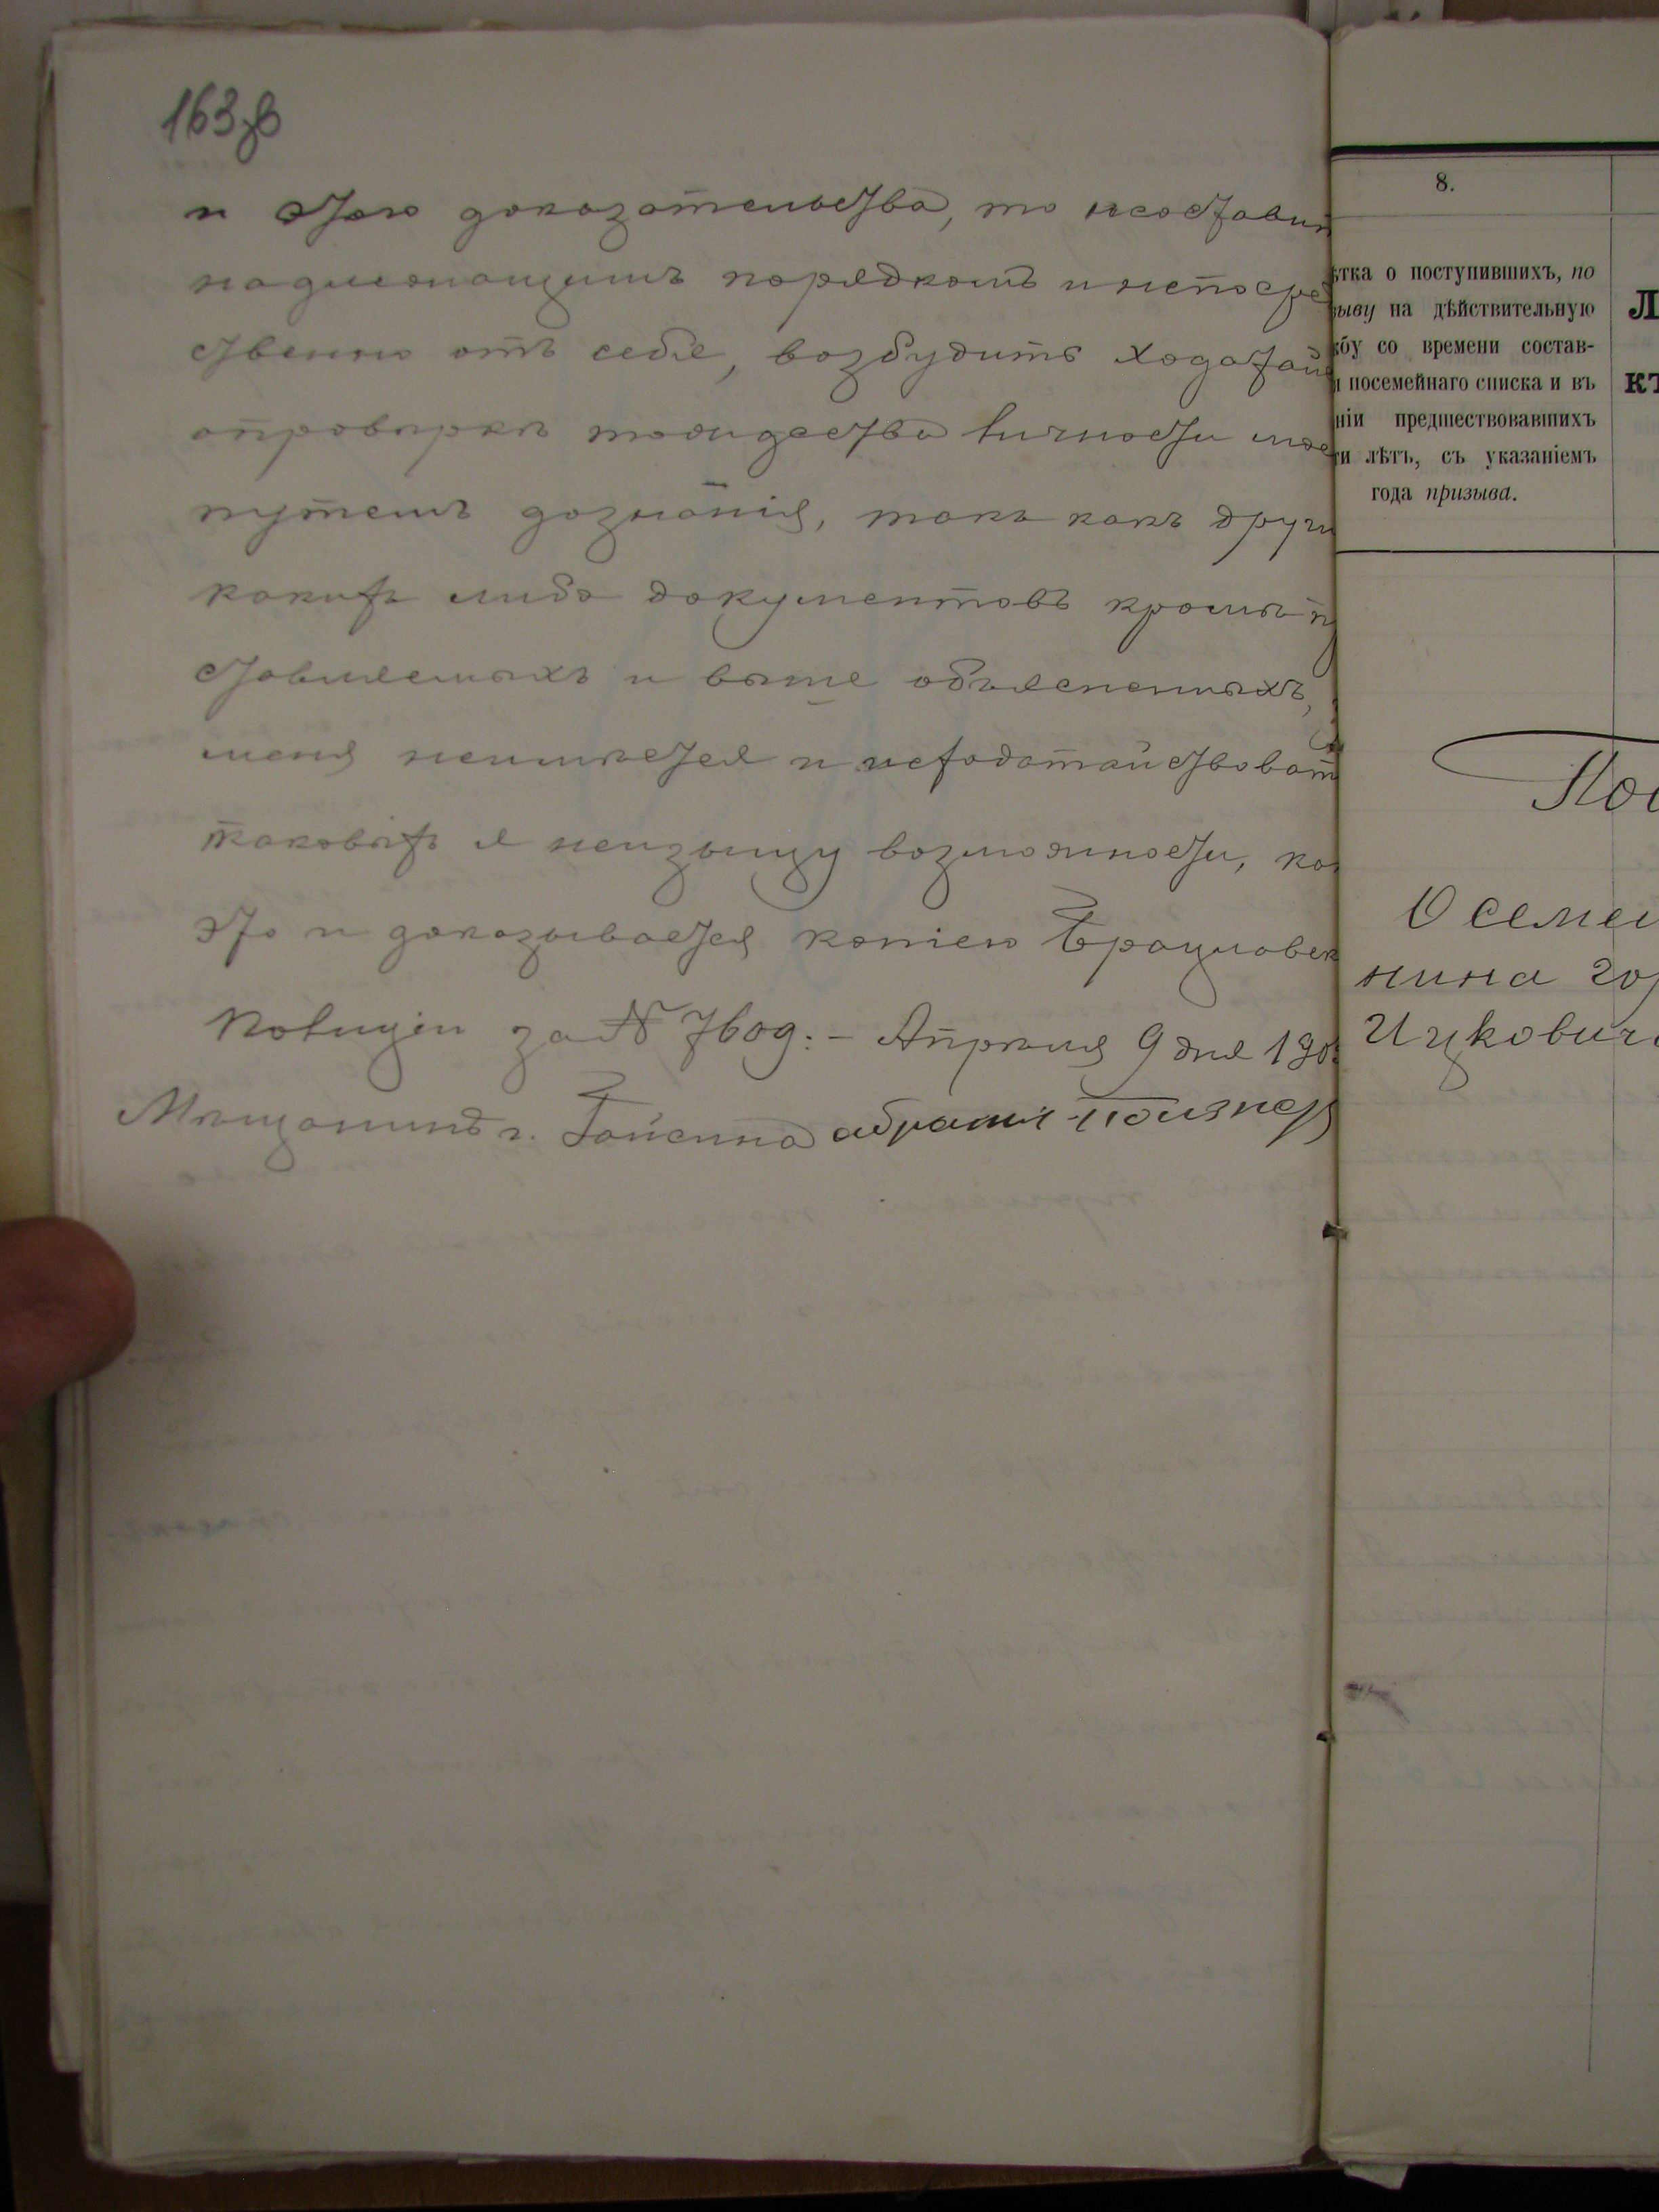 163зв
и этого доказательства, то неоставит
надлежащимъ порядкомъ и непосред
ственно отъ себя, возбудить ходатай
опроверкѣ тождества личности мое
путемъ дознанія, такъ какъ други
какихъ либо документовъ кромѣ п
ставляемыхъ и выше объясненныхъ,
меня неимѣется и исходатайствоват
таковыхъ я неизыщу возможности, ка
это и доказывается копіею Брацлавск
Полиціи за № 7609: - Апрѣля 9 дня 190
Мѣщанинъ г. Гайсина абрамъ Познер
8.
ѣтка о поступившихъ, по
зыву на дѣйствительную
жбу со времени состав-
и посемейнаго списка и въ
ніи предшествовавшихъ
ти лѣтъ, съ указаніемъ
года призыва.
Л
КТ
Пос
О семей
нина гор
Ицкович